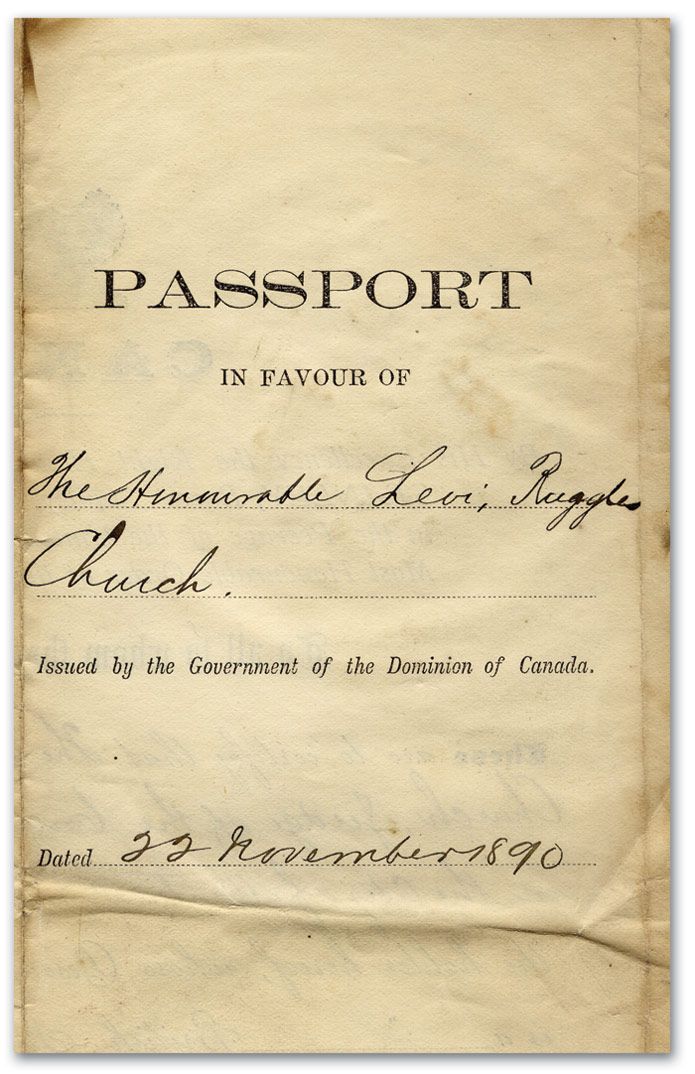 PASSPORT
IN FAVOUR OF
The Honourable Levi, Ruggles
Church.
Issued by the Government of the Dominion of Canada.
Dated 22 November 1890